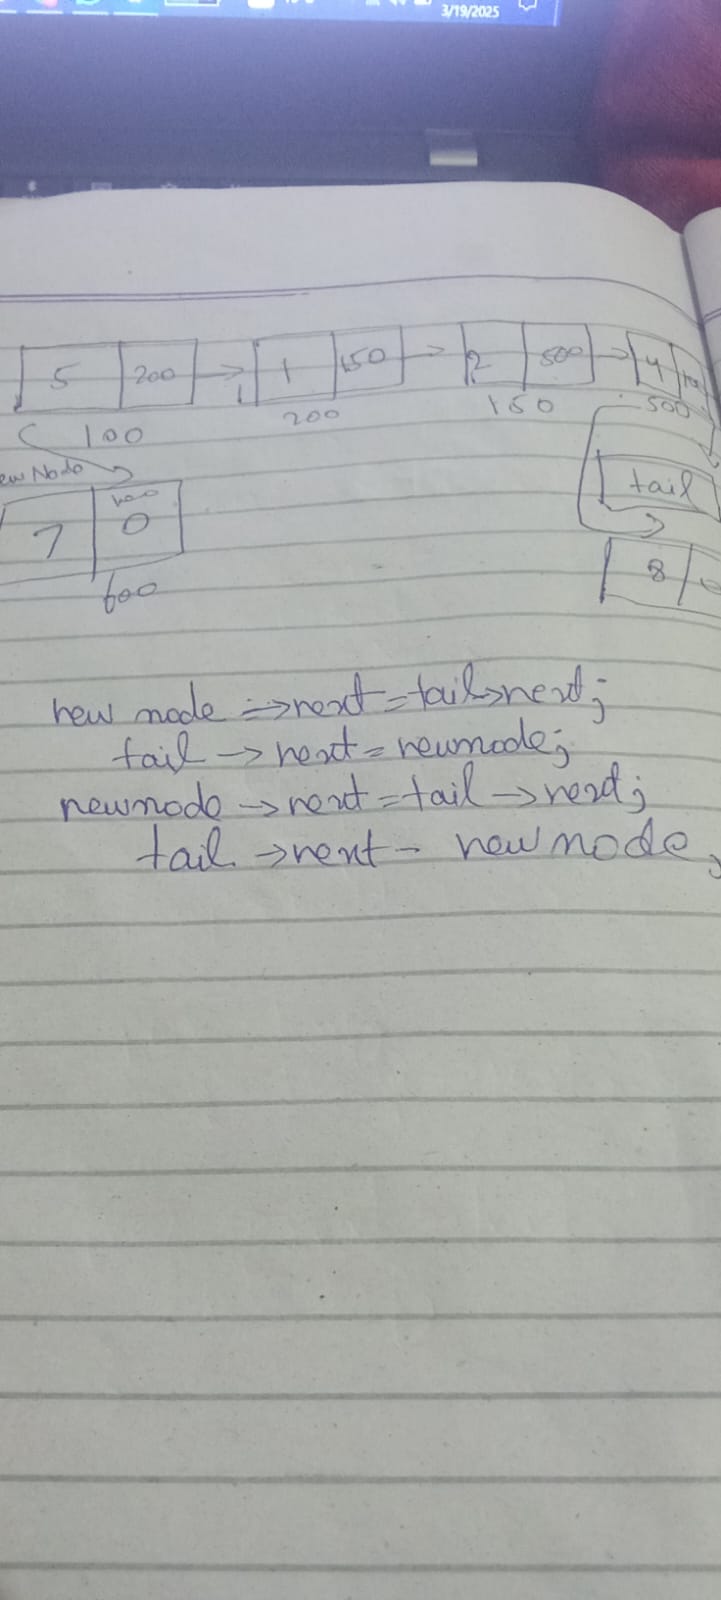 3/19/2025
5 200 1 150 2 500 4
100 200 150 500
Node
tail
7 0
8
600
new node → next = tail → next;
tail → next = newnode;
newnode → next = tail → next;
tail → next - newnode,